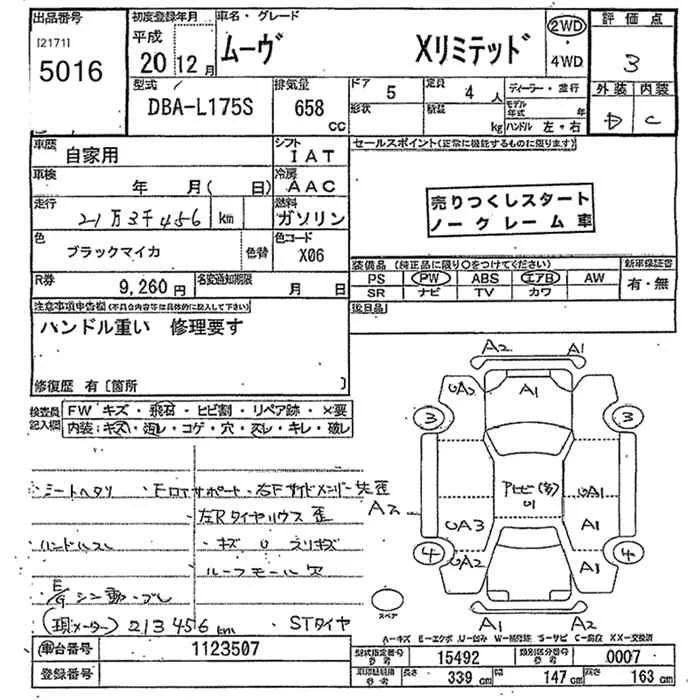 出品番号 初度登録年月 車名・グレード 評価点
[2171] 平成 ムーヴ Xリミテッド 2WD
5016 20年12月 ・4WD 3
型式 排気量 ドア 5 定員 4人 ディーラー・並行 外装 内装
DBA-L175S 658 CC 形状 積載 kg モデル年式 年 D C
ハンドル 左・右
車歴 自家用 シフト IAT セールスポイント(正常に機能するものに限ります)
車検 年 月( 日) 冷房 AAC
走行 21万3千456 km 燃料 ガソリン
売りつくしスタート
ノークレーム車
色 ブラックマイカ 色替 色コード X06
装備品 (純正品に限り○をつけてください) 新車保証書
R券 9,260円 名変通知期限 月 日
PS PW ABS エアB AW 有・無
SR ナビ TV カワ
注意事項申告欄(不具合内容等は具体的に記入して下さい) 後日品
ハンドル重い 修理要す
修復歴 有〔箇所 〕
検査員記入欄
FW キズ・飛石・ヒビ割・リペア跡・×要
内装:キズ・汚レ・コゲ・穴・スレ・キレ・破レ
シートヘタリ
左Rタイヤハウス 歪
ハンドルスレ ・キズ U スリキズ
ルーフモール欠
E/g シン動・ブレ
(現メーター) 213456km STタイヤ
A2 A1
UA2 A1
3 3
アヒビ(多)
U1
A2 UA3 UA1
A1
4 UA2 A1 4
A1 A2
スペア
A-キズ E-エクボ U-凹み W-補修跡 S-サビ C-腐蝕 XX-交換済
車台番号 1123507
型式指定番号 参考 15492 類別区分番号 参考 0007
登録番号
車両諸規格 参考 長さ 339cm 幅 147cm 高さ 163cm